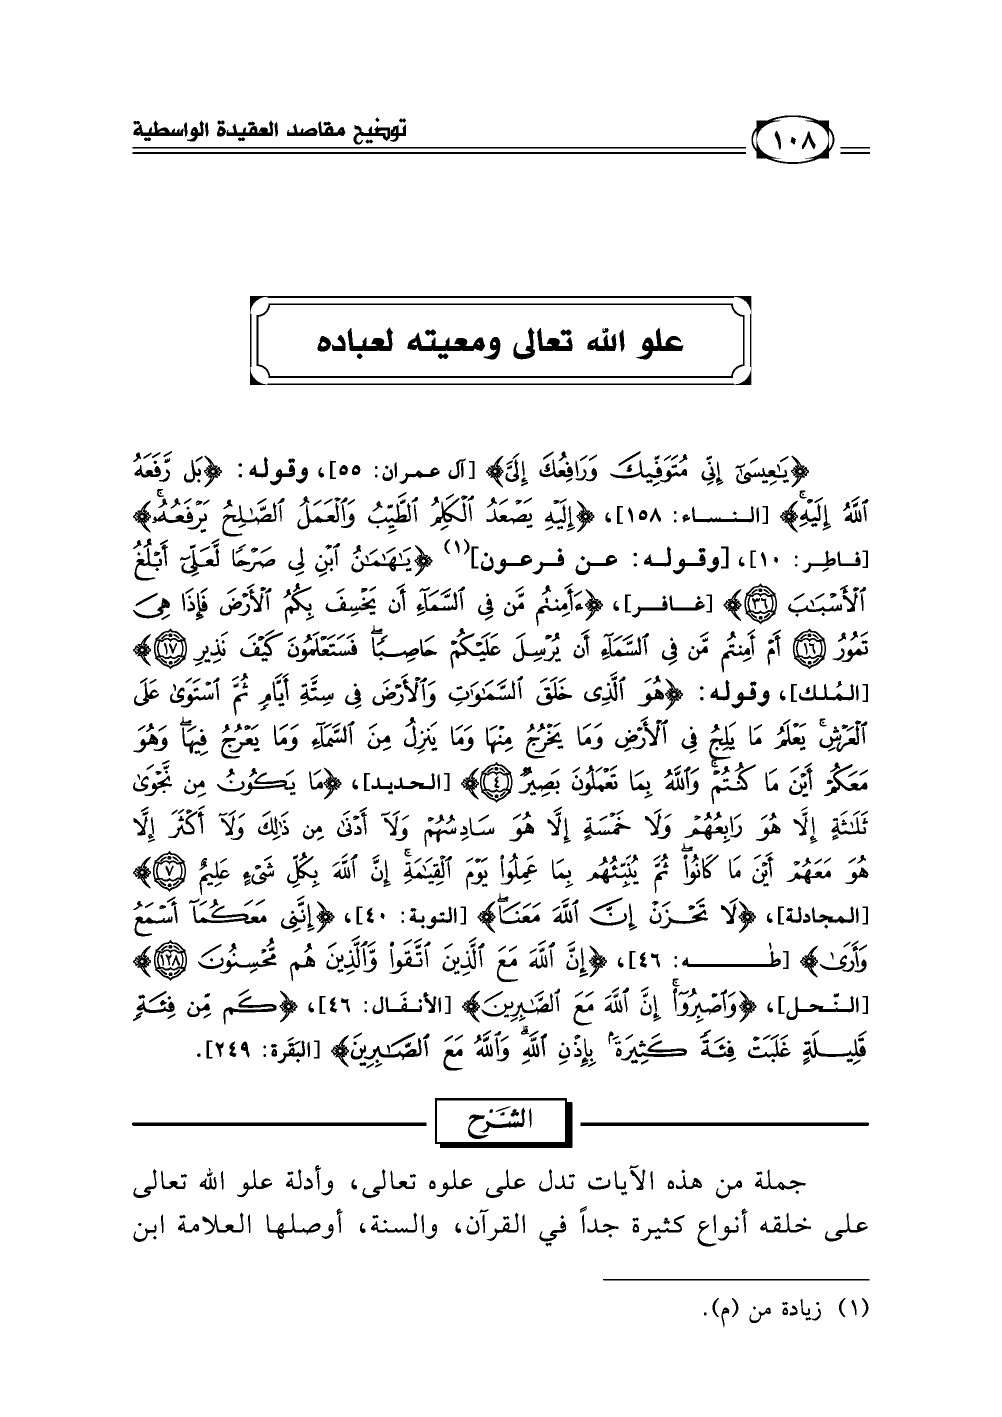 توضيح مقاصد العقيدة الواسطية
١٠٨
علو الله تعالى ومعيته لعباده
﴿يَٰعِيسَىٰٓ إِنِّي مُتَوَفِّيكَ وَرَافِعُكَ إِلَيَّ﴾ [آل عمران: ٥٥]، وقوله: ﴿بَل رَّفَعَهُ
ٱللَّهُ إِلَيْهِۚ﴾ [النساء: ١٥٨]، ﴿إِلَيْهِ يَصْعَدُ ٱلْكَلِمُ ٱلطَّيِّبُ وَٱلْعَمَلُ ٱلصَّٰلِحُ يَرْفَعُهُۥۚ﴾
[فاطر: ١٠]، [وقوله: عن فرعون](١) ﴿يَٰهَٰمَٰنُ ٱبْنِ لِي صَرْحًا لَّعَلِّيٓ أَبْلُغُ
ٱلْأَسْبَٰبَ ٣٦﴾ [غافر]، ﴿ءَأَمِنتُم مَّن فِي ٱلسَّمَآءِ أَن يَخْسِفَ بِكُمُ ٱلْأَرْضَ فَإِذَا هِيَ
تَمُورُ ١٦ أَمْ أَمِنتُم مَّن فِي ٱلسَّمَآءِ أَن يُرْسِلَ عَلَيْكُمْ حَاصِبًاۖ فَسَتَعْلَمُونَ كَيْفَ نَذِيرِ ١٧﴾
[المُلك]، وقوله: ﴿هُوَ ٱلَّذِي خَلَقَ ٱلسَّمَٰوَٰتِ وَٱلْأَرْضَ فِي سِتَّةِ أَيَّامٍ ثُمَّ ٱسْتَوَىٰ عَلَى
ٱلْعَرْشِۚ يَعْلَمُ مَا يَلِجُ فِي ٱلْأَرْضِ وَمَا يَخْرُجُ مِنْهَا وَمَا يَنزِلُ مِنَ ٱلسَّمَآءِ وَمَا يَعْرُجُ فِيهَاۖ وَهُوَ
مَعَكُمْ أَيْنَ مَا كُنتُمْۚ وَٱللَّهُ بِمَا تَعْمَلُونَ بَصِيرٌ ٤﴾ [الحديد]، ﴿مَا يَكُونُ مِن نَّجْوَىٰ
ثَلَٰثَةٍ إِلَّا هُوَ رَابِعُهُمْ وَلَا خَمْسَةٍ إِلَّا هُوَ سَادِسُهُمْ وَلَآ أَدْنَىٰ مِن ذَٰلِكَ وَلَآ أَكْثَرَ إِلَّا
هُوَ مَعَهُمْ أَيْنَ مَا كَانُواْۖ ثُمَّ يُنَبِّئُهُم بِمَا عَمِلُواْ يَوْمَ ٱلْقِيَٰمَةِۚ إِنَّ ٱللَّهَ بِكُلِّ شَيْءٍ عَلِيمٌ ٧﴾
[المجادلة]، ﴿لَا تَحْزَنْ إِنَّ ٱللَّهَ مَعَنَاۖ﴾ [التوبة: ٤٠]، ﴿إِنَّنِي مَعَكُمَآ أَسْمَعُ
وَأَرَىٰ﴾ [طه: ٤٦]، ﴿إِنَّ ٱللَّهَ مَعَ ٱلَّذِينَ ٱتَّقَواْ وَّٱلَّذِينَ هُم مُّحْسِنُونَ ١٢٨﴾
[النّحل]، ﴿وَٱصْبِرُوٓاْۚ إِنَّ ٱللَّهَ مَعَ ٱلصَّٰبِرِينَ﴾ [الأنفال: ٤٦]، ﴿كَم مِّن فِئَةٍ
قَلِيلَةٍ غَلَبَتْ فِئَةً كَثِيرَةً بِإِذْنِ ٱللَّهِۗ وَٱللَّهُ مَعَ ٱلصَّٰبِرِينَ﴾ [البَقَرَة: ٢٤٩].
الشَّرْح
جملة من هذه الآيات تدل على علوه تعالى، وأدلة علو الله تعالى
على خلقه أنواع كثيرة جداً في القرآن، والسنة، أوصلها العلامة ابن
(١) زيادة من (م).